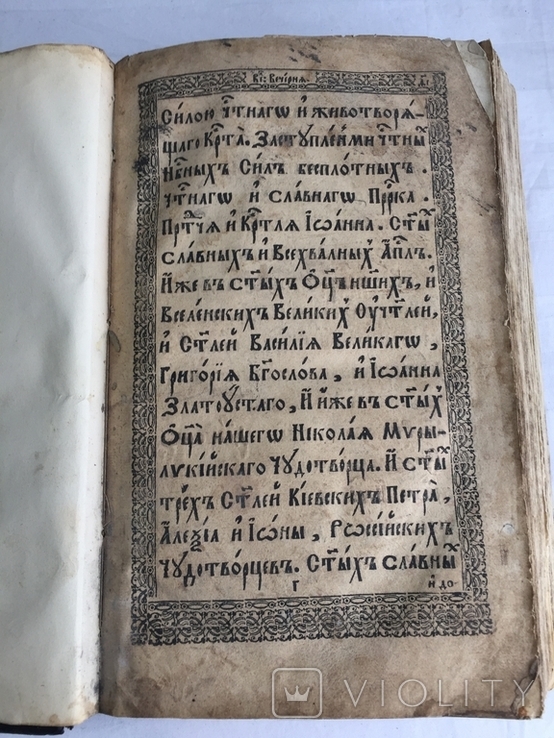 Вı: Вече́рня.
Си́лою чⷭ҇тна́гѡ и҆ животворѧ́-
щагѡ крⷭ҇та̀. Застꙋпле́нїи чⷭ҇тны́
нбⷭ҇ныхъ си́лъ безпло́тныхъ.
чⷭ҇тна́гѡ и҆ сла́внагѡ прⷪ҇рка.
Прⷣтчѧ и҆ крⷭ҇тлѧ І҆ѡа́нна. Ст҃ы́
сла́вныхъ и҆ всехва́лныⷯ а҆пⷭ҇лъ.
И҆́же въ ст҃ы́хъ ѻ҆ц҃ъ на́шихъ, и҆
вселе́нскихъ вели́киⷯ оу҆чт҃лей,
и҆ ст҃лей Васи́лїѧ вели́кагѡ,
Григо́рїѧ бг҃осло́ва, и҆ І҆ѡа́нна
Златоꙋ́стаго, И҆ и҆́же въ ст҃ы́ⷯ
ѻ҆ц҃а̀ на́шегѡ Нїкола́ѧ Мѵры
лѷкі́йскаго чꙋдотво́рца. И҆ ст҃ы́ⷯ
трⷷхъ ст҃лей кі́евскихъ Петра̀,
А҆леѯі́а и҆ І҆ѡ́ны, Рѡссі́йскихъ
чꙋдотво́рцевъ. Ст҃ы́хъ сла́вны́ⷯ
г
и҆ до-
VIOLITY